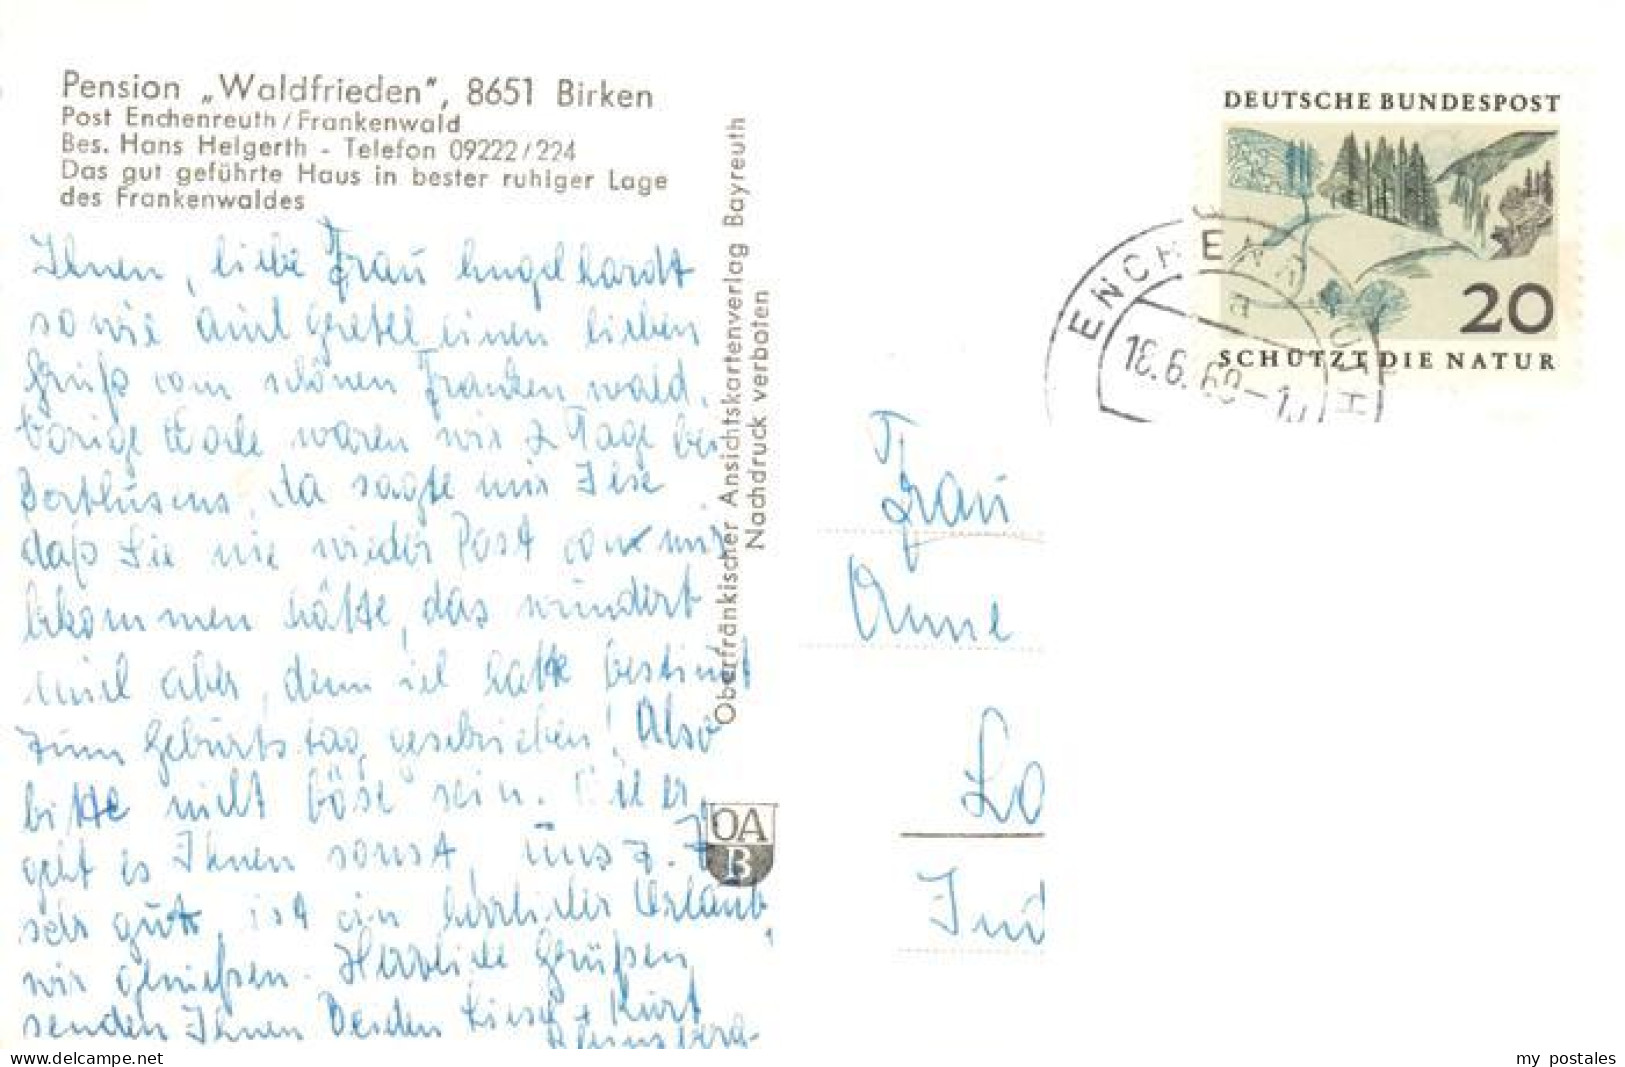 Pension „Waldfrieden“, 8651 Birken
Post Enchenreuth / Frankenwald
Bes. Hans Helgerth - Telefon 09222 / 224
Das gut geführte Haus in bester ruhiger Lage
des Frankenwaldes
Ihnen, liebe Frau Engelhardt
sowie auch Gretel einen lieben
Gruß vom schönen Frankenwald.
Vorige Woche waren wir 2 Tage bei
da sagte mir Ilse
daß Sie nie wieder Post von mir
bekommen hätte, das wundert
mich aber, denn ich hatte bestimt
zum Geburtstag geschrieben! Also
bitte nicht böse sein. Wie
geht es Ihnen sonst, uns z. Z.
sehr gut, ist ein herrlicher Urlaub,
wir genießen. Herzliche Grüßen
senden Ihnen Beiden Liesel + Kurt
Oberfränkischer Ansichtskartenverlag Bayreuth
Nachdruck verboten
OA
B
DEUTSCHE BUNDESPOST
20
SCHÜTZT DIE NATUR
ENCHENREUTH
18.6.69-1
Frau
Anne
Lo
Ind
my postales
www.delcampe.net